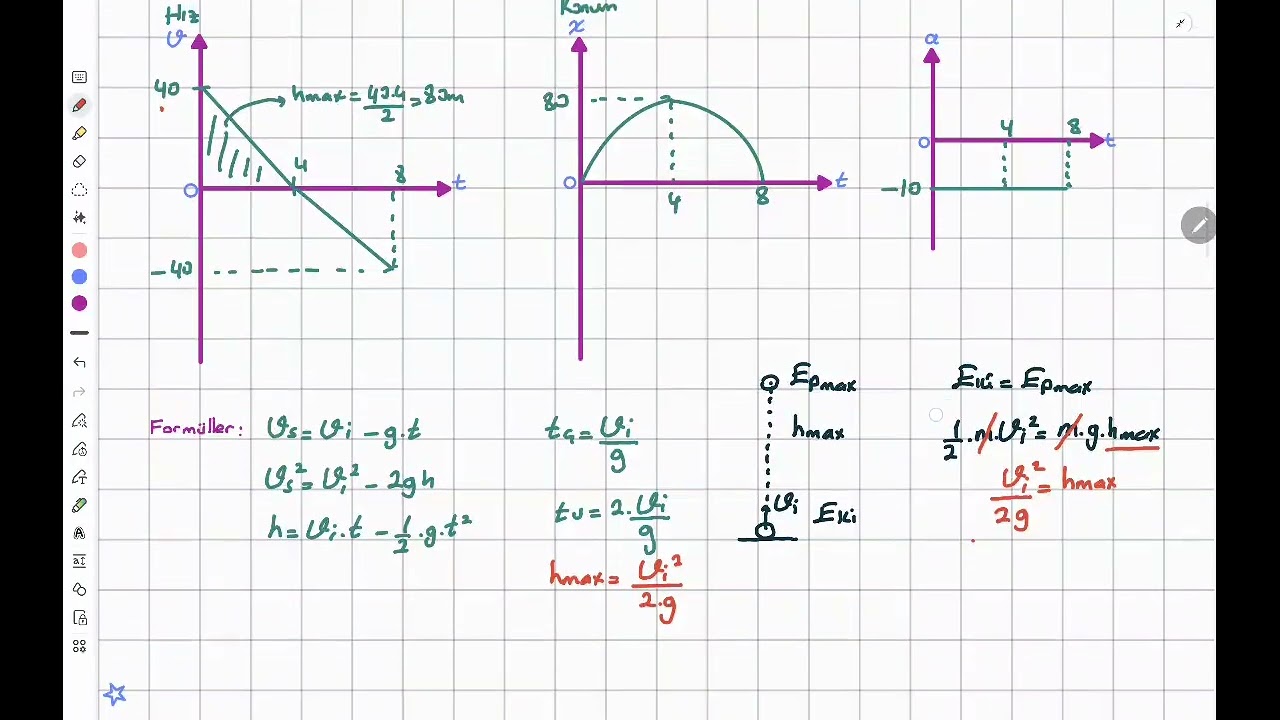 Hız
v
40
hmax = 40.4/2 = 80m
4
8
0
t
-40
Konum
x
80
0
4
8
t
a
4
8
0
t
-10
Formüller:
vs = vi - g.t
vs² = vi² - 2gh
h = vi.t - 1/2.g.t²
tç = vi/g
tu = 2.vi/g
hmax = vi²/2.g
Epmax
hmax
vi
Eki
Eki = Epmax
1/2.m.vi² = m.g.hmax
vi²/2g = hmax